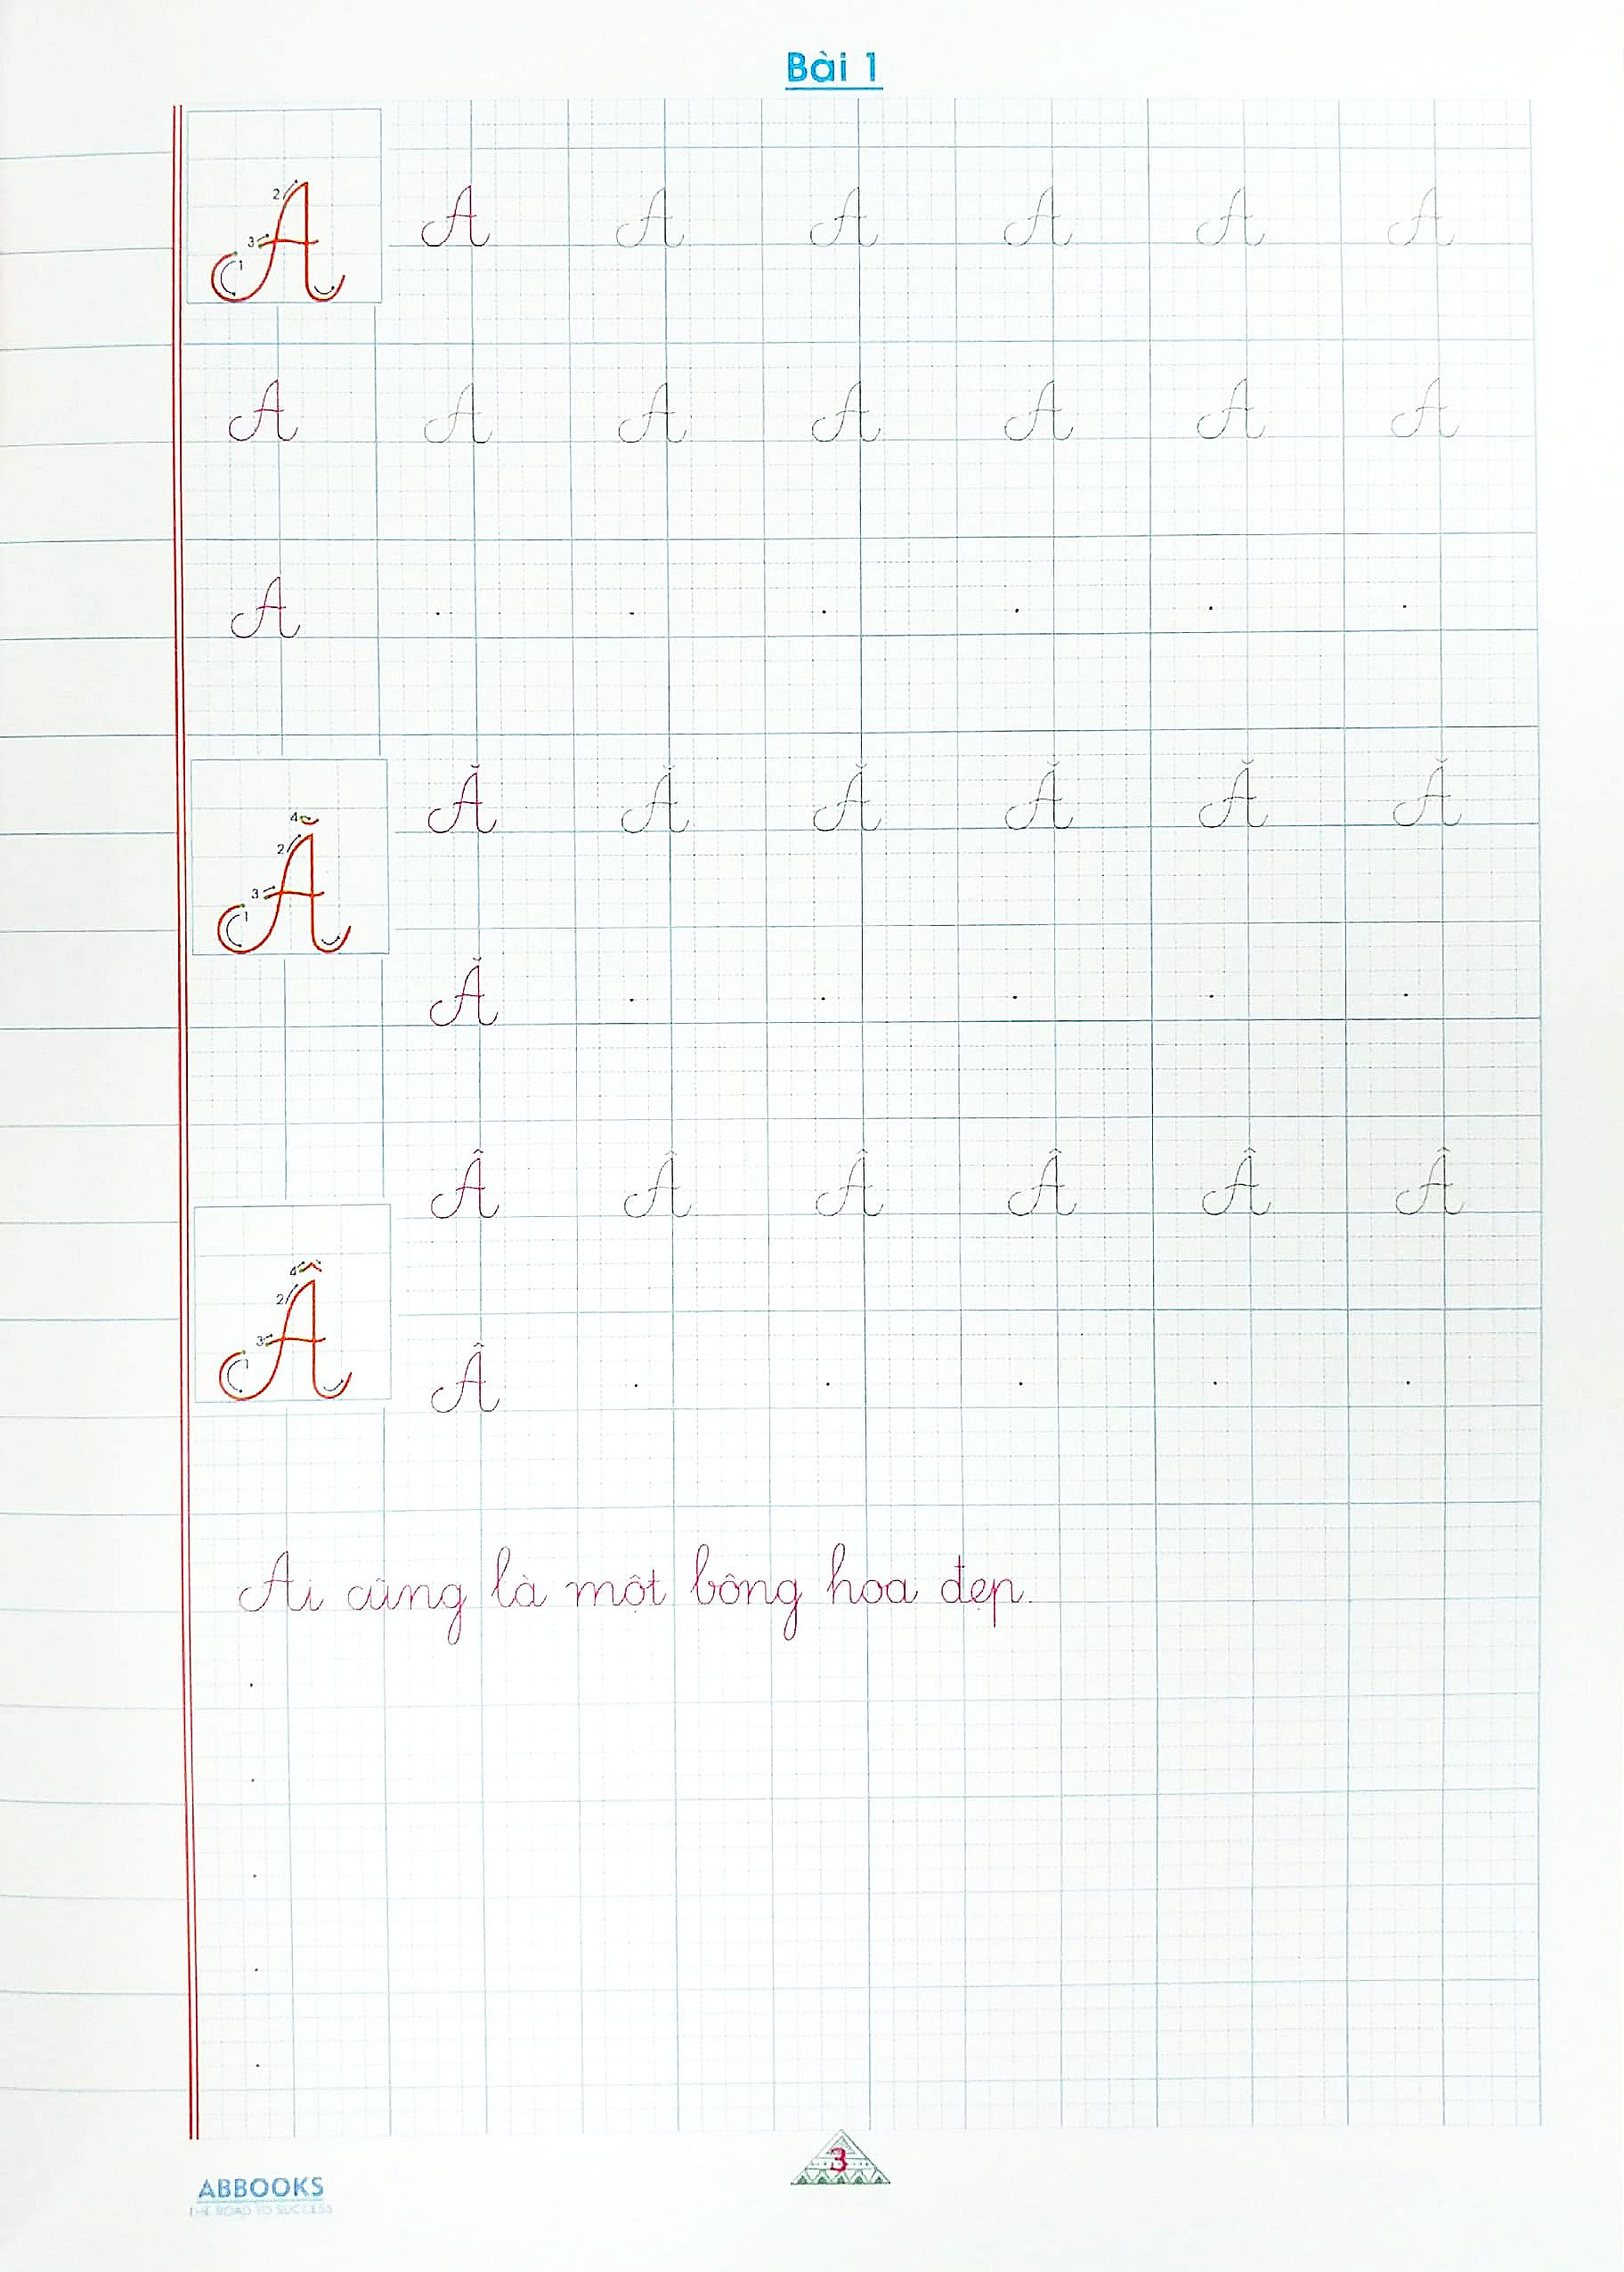 Bài 1
2 3 1 A A A A A A A
A A A A A A A
A
4 2 3 1 Ă Ă Ă Ă Ă Ă Ă
Ă
Â Â Â Â Â Â
4 2 3 1 Â Â
Ai cũng là một bông hoa đẹp.
3
ABBOOKS
THE ROAD TO SUCCESS